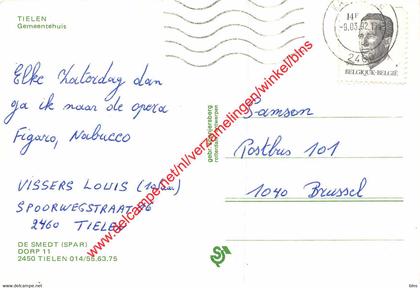 TIELEN
Gemeentehuis
14F
-9.03.92
BELGIQUE-BELGIË
Elke Zaterdag dan
ga ik naar de opera
Figaro, Nabucco
VISSERS LOUIS
SPOORWEGSTRAAT
2460 TIELEN
Samson
Postbus 101
1040 Brussel
gebr. spanjersberg
www.delcampe.net/nl/verzamelingen/winkel/blns
DE SMEDT (SPAR)
DORP 11
2450 TIELEN 014/55.63.75